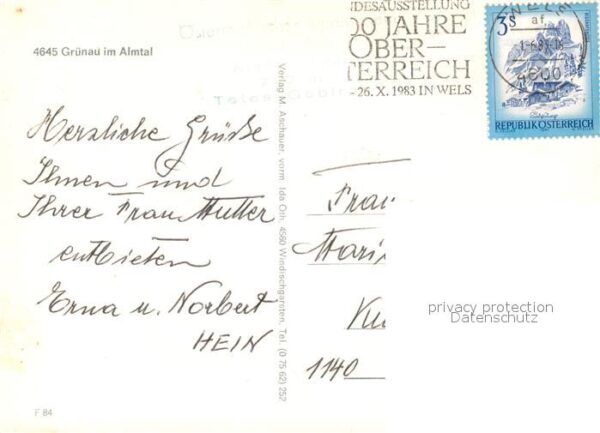 4645 Grünau im Almtal
Herzliche Grüße
Ihnen und
Ihrer Frau Mutter
entbieten
Erna u. Norbert
HEIN
F 84
Verlag M. Aschauer, vorm. Ida Orih. 4580 Windischgarsten, Tel. (0 75 62) 252
DESAUSSTELLUNG
00 JAHRE
OBER-
TERREICH
-26. X. 1983 IN WELS
WELS
af
4600
3S
REPUBLIK ÖSTERREICH
Frau
Mari
1140
privacy protection
Datenschutz